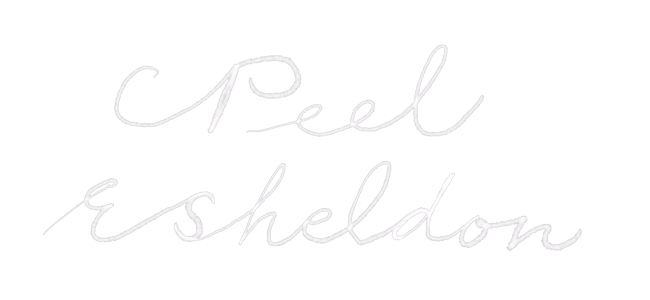 C Peel
E Sheldon